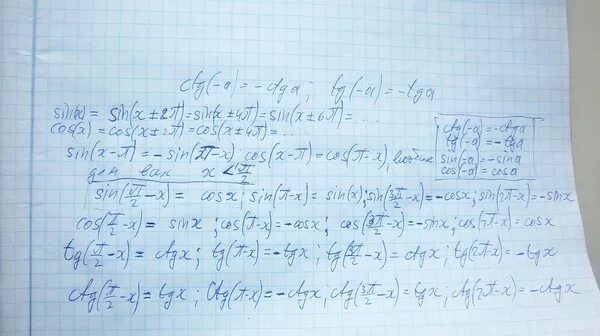 ctg(-a) = -ctga; tg(-a) = -tga
sin(x) = sin(x ± 2π) = sin(x ± 4π) = sin(x ± 6π) = ...
cos(x) = cos(x ± 2π) = cos(x ± 4π) = ....
ctg(-a) = -ctga
tg(-a) = -tga
sin(-a) = -sina
cos(-a) = cosa
sin(x-π) = -sin(π-x), cos(x-π) = cos(π-x), вообще
для всех x < π/2
sin(π/2 - x) = cosx; sin(π-x) = sin(x); sin(3π/2 - x) = -cosx; sin(2π-x) = -sinx
cos(π/2 - x) = sinx; cos(π-x) = -cosx; cos(3π/2 - x) = -sinx; cos(2π-x) = cosx
tg(π/2 - x) = ctgx; tg(π-x) = -tgx; tg(3π/2 - x) = ctgx; tg(2π-x) = -tgx
ctg(π/2 - x) = tgx; ctg(π-x) = -ctgx; ctg(3π/2 - x) = tgx; ctg(2π-x) = -ctgx